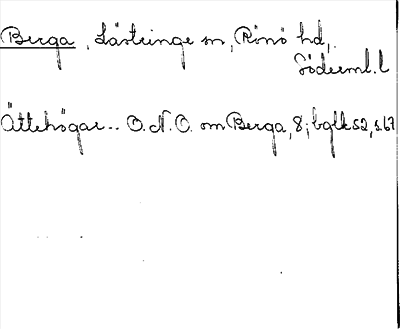 Berga, Lästringe sn, Rönö hd,
Söderml. l
Ättehögar.. O.N.O. om Berga, 8; bglk 52, s. 67